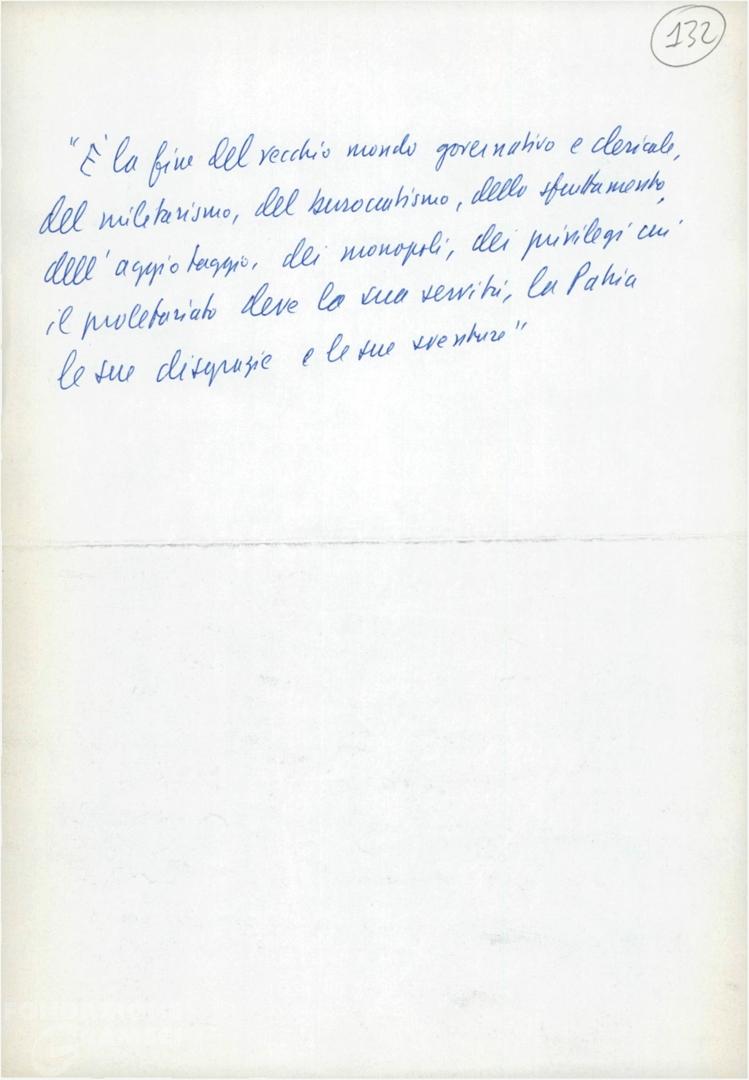 132
"È la fine del vecchio mondo governativo e clericale,
del militarismo, del burocratismo, dello sfruttamento,
dell'aggiotaggio, dei monopoli, dei privilegi cui
il proletariato deve la sua servitù, la Patria
le sue disgrazie e le sue sventure"
FONDAZIONE